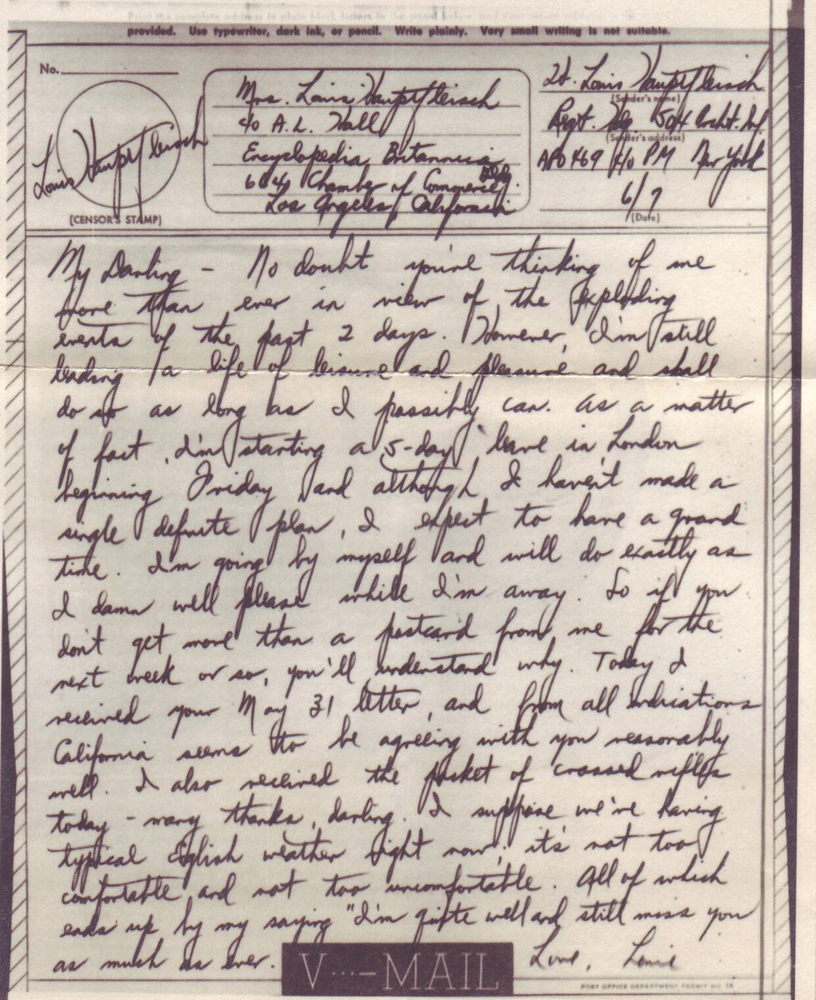 Print the complete address in plain block letters in the panel below, and your return address in the space
provided. Use typewriter, dark ink, or pencil. Write plainly. Very small writing is not suitable.
No.
Louis Hauptfleisch
[CENSOR'S STAMP]
Mrs. Louis Hauptfleisch
c/o A.L. Hall
Encyclopedia Britannica
Chamber of Commerce Bldg.
Los Angeles, California
Lt. Louis Hauptfleisch
(Sender's name)
Regt. Hq 504 Prcht. Inf
(Sender's address)
APO 469 c/o PM New York
6/7
(Date)
My Darling - No doubt you're thinking of me
more than ever in view of the exploding
events of the past 2 days. However, I'm still
leading a life of leisure and pleasure and shall
do so as long as I possibly can. As a matter
of fact, I'm starting a 5-day leave in London
beginning Friday and although I haven't made a
single definite plan, I expect to have a grand
time. I'm going by myself and will do exactly as
I damn well please while I'm away. So if you
don't get more than a postcard from me for the
next week or so, you'll understand why. Today I
received your May 31 letter, and from all indications
California seems to be agreeing with you reasonably
well. I also received the packet of crossed rifles
today - many thanks, darling. I suppose we're having
typical English weather right now: it's not too
comfortable and not too uncomfortable. All of which
ends up by my saying "I'm quite well and still miss you
as much as ever. Love, Louie
V···–MAIL
POST OFFICE DEPARTMENT PERMIT NO.